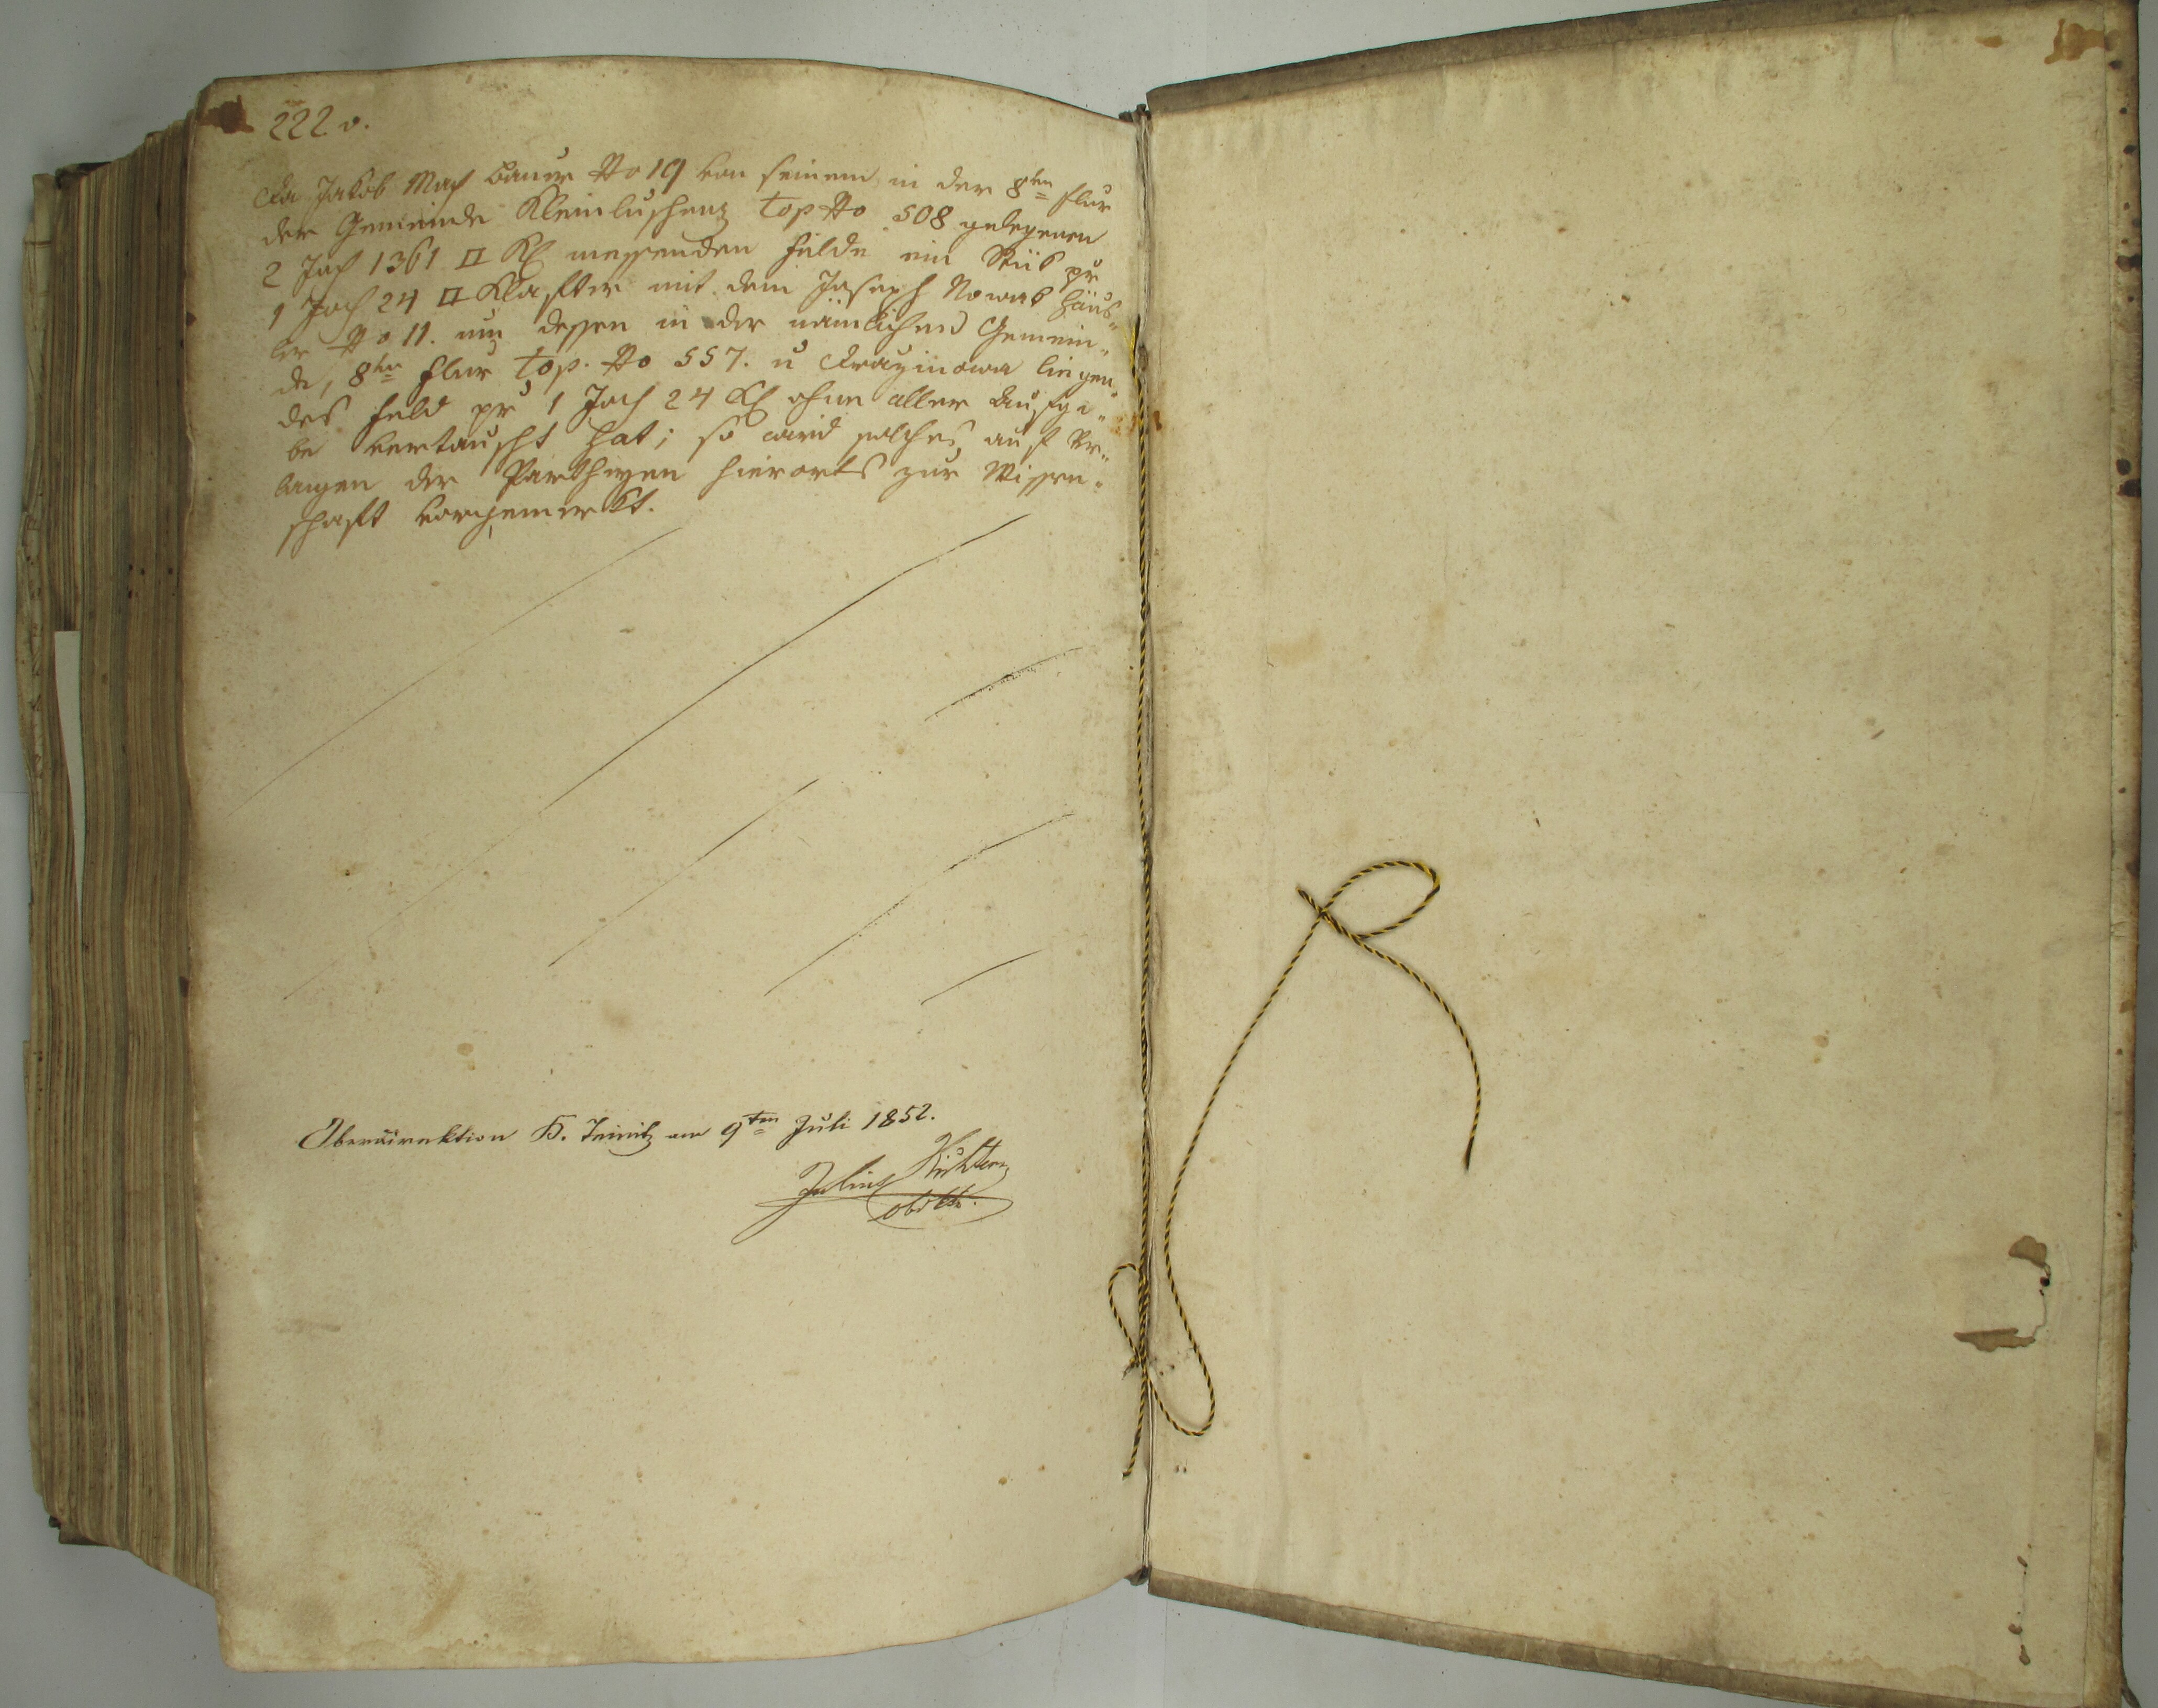 222 v.
Da Jakob Mach Bauer No 19 von seinem in der 8ten Flur
der Gemeinde Kleinluschenz top No 508 gelegenen
2 Joch 1361 □ Kl messenden Felde ein Stück pr
1 Joch 24 □ Klafter mit dem Joseph Nowak Häus„
ler No 11. um dessen in der nämlichen Gemein„
de, 8ten Flur top. No 557. u liegen„
des Feld pr 1 Joch 24 Kl ohne aller Aufga„
be vertauscht hat; so wird solches auf Ver„
langen der Partheyen hierorts zur Wissen„
schaft vorgemerkt.
Oberdirektion B. Teinitz am 9ten Juli 1852.
Julius Richter